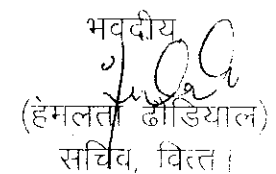 भवदीय,
(हेमलता ढौंडियाल)
सचिव, वित्त।